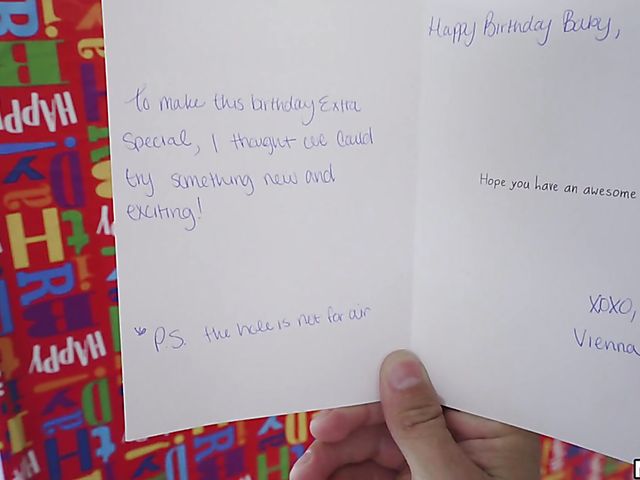 Happy Birthday Baby,
To make this birthday Extra
Special, I thought we could
try something new and
exciting!
Hope you have an awesome
*P.S. the hole is not for air
XOXO,
Vienna
HAPPY
HAPPY